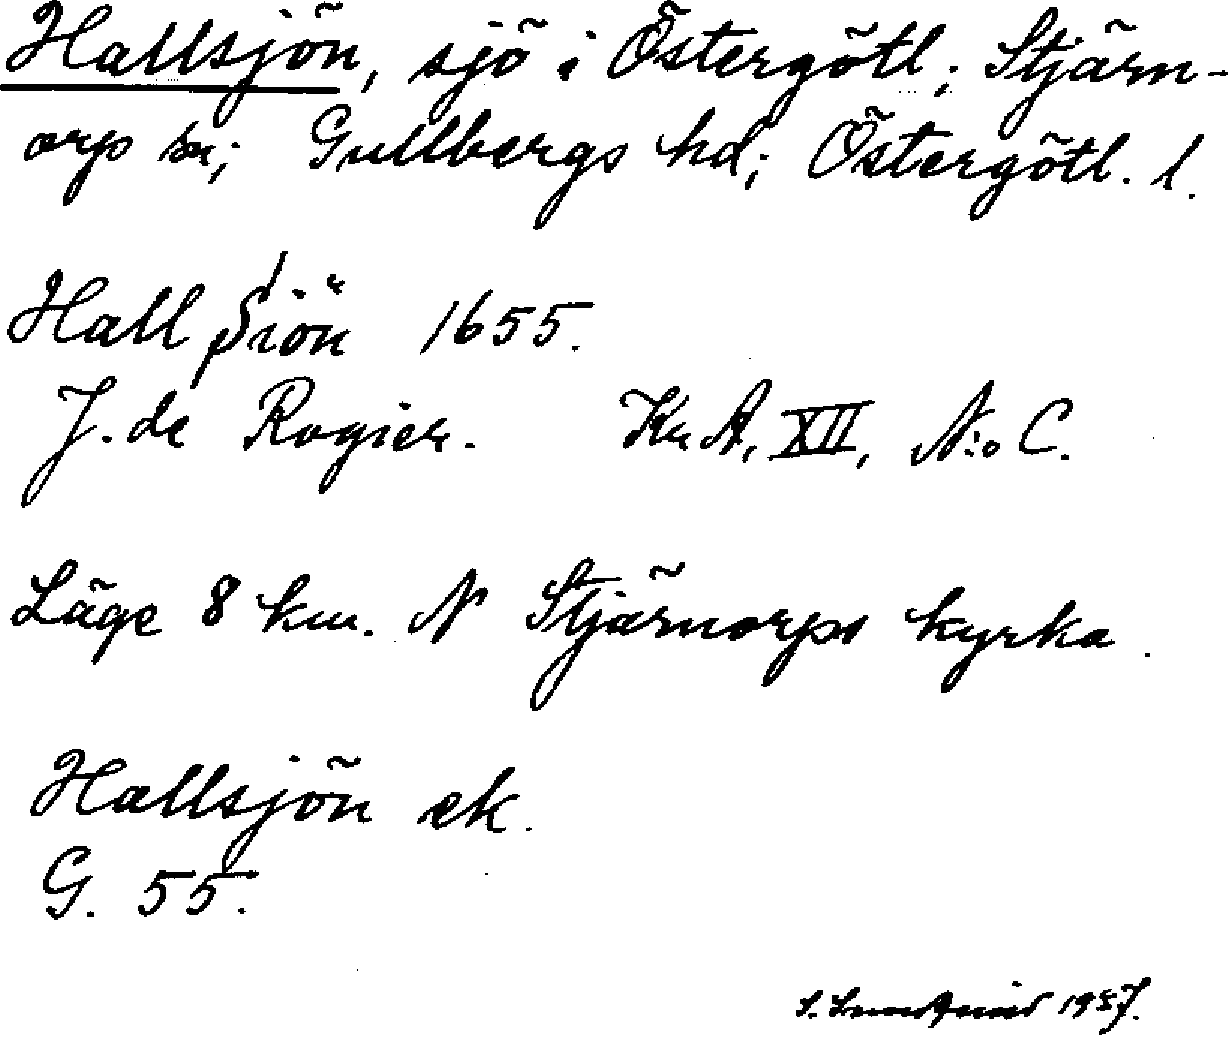 Hallsjön, sjö i Östergötl; Stjärn-
orp sn; Gullbergs hd; Östergötl. l.
Hall Siön 1655.
J. de Rogier. Kr A, XII, N:o C.
Läge 8 km. N Stjärnorps kyrka.
Hallsjön ek.
G. 55.
S. 1957.